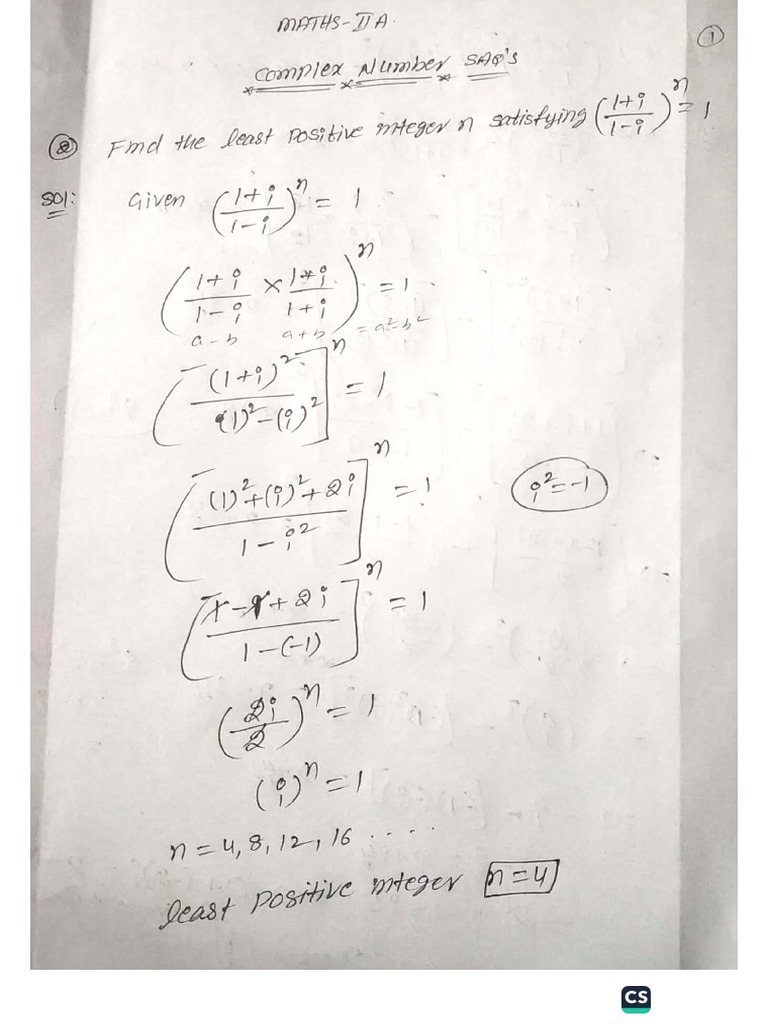 MATHS-II A.
1
Complex Number SAQ's
② Find the least positive integer n satisfying ((1+i)/(1-i))^n = 1
Sol: Given ((1+i)/(1-i))^n = 1
((1+i)/(1-i) × (1+i)/(1+i))^n = 1
a-b a+b = a²-b²
[(1+i)²/((1)²-(i)²)]^n = 1
[((1)²+(i)²+2i)/(1-i²)]^n = 1
i²=-1
[(1-1+2i)/(1-(-1))]^n = 1
(2i/2)^n = 1
(i)^n = 1
n = 4, 8, 12, 16 ....
least positive integer n=4
CS